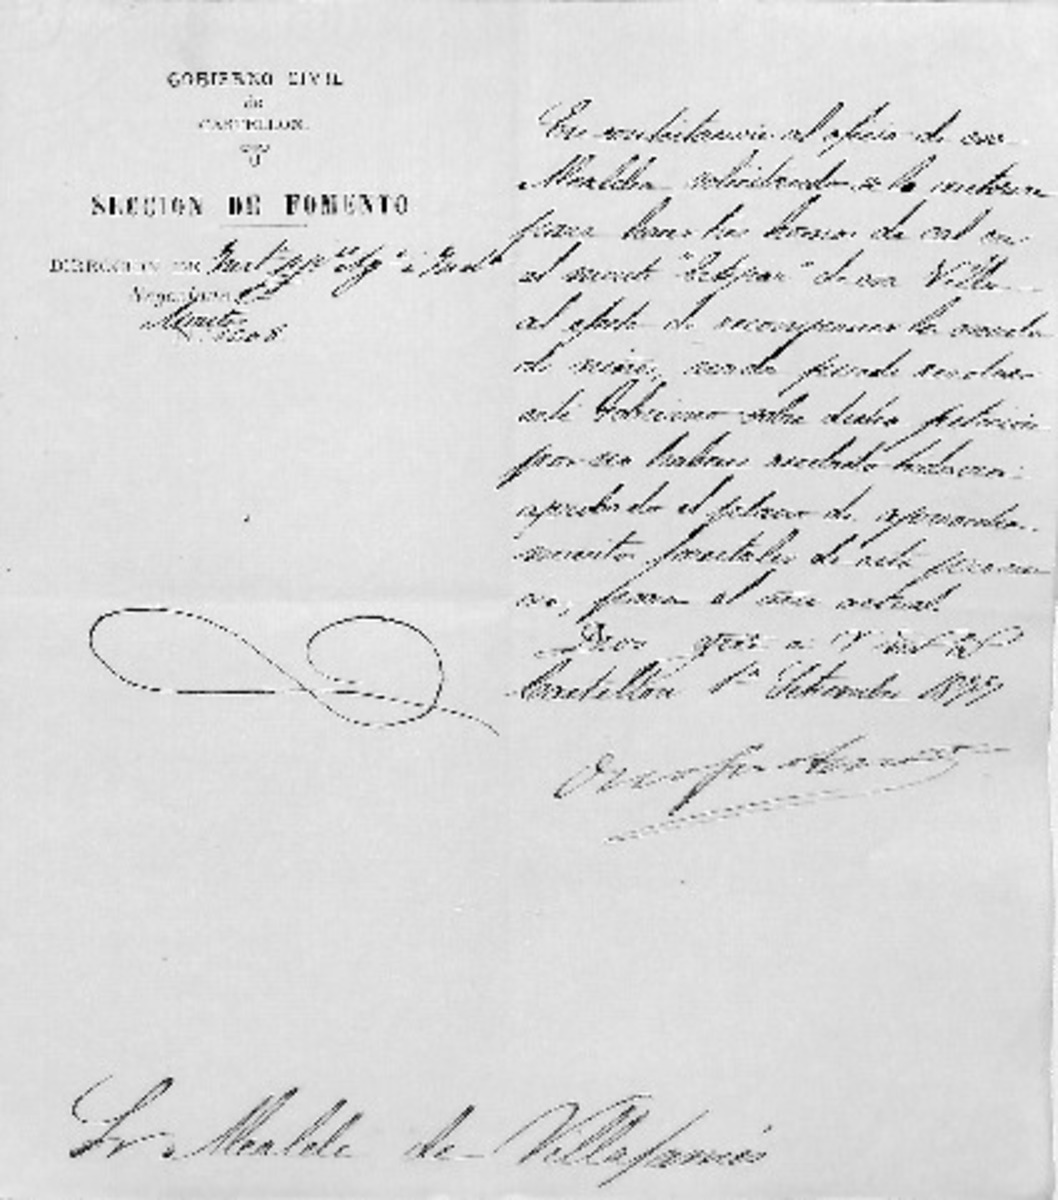 GOBIERNO CIVIL
de
CASTELLON.
SECCION DE FOMENTO
DIRECCION DE
Negociado
Montes
En contestacion al oficio de esa
Alcaldia solicitando se le autorice
para hacer tres hornos de cal en
el monte de esa Villa
al efecto de recompensar la
de nieve, nada puede resolver
este Gobierno sobre dicha peticion
por no haberse recibido todavia
aprobado el plan de aprovecha-
mientos forestales de esta provin-
cia, para el año actual.
Dios a V
Castellon 1º Setiembre 1899
Sr Alcalde de Villafamés